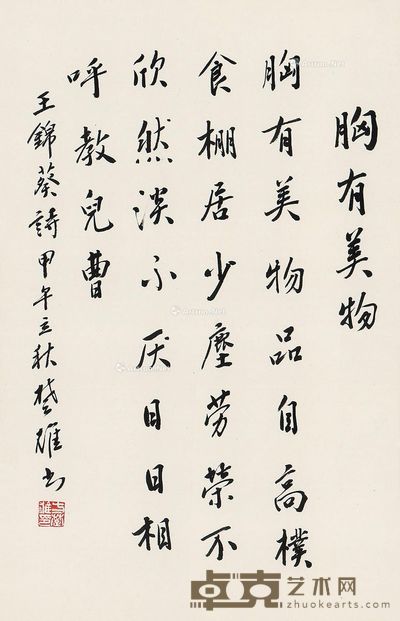 胸有美物
胸有美物品自高樸
食棚居少塵劳荣不
欣然淡不厌日日相
呼教兒曹
王錦葵詩甲午立秋楚雄书
卓克艺术网
www.zhuokearts.com